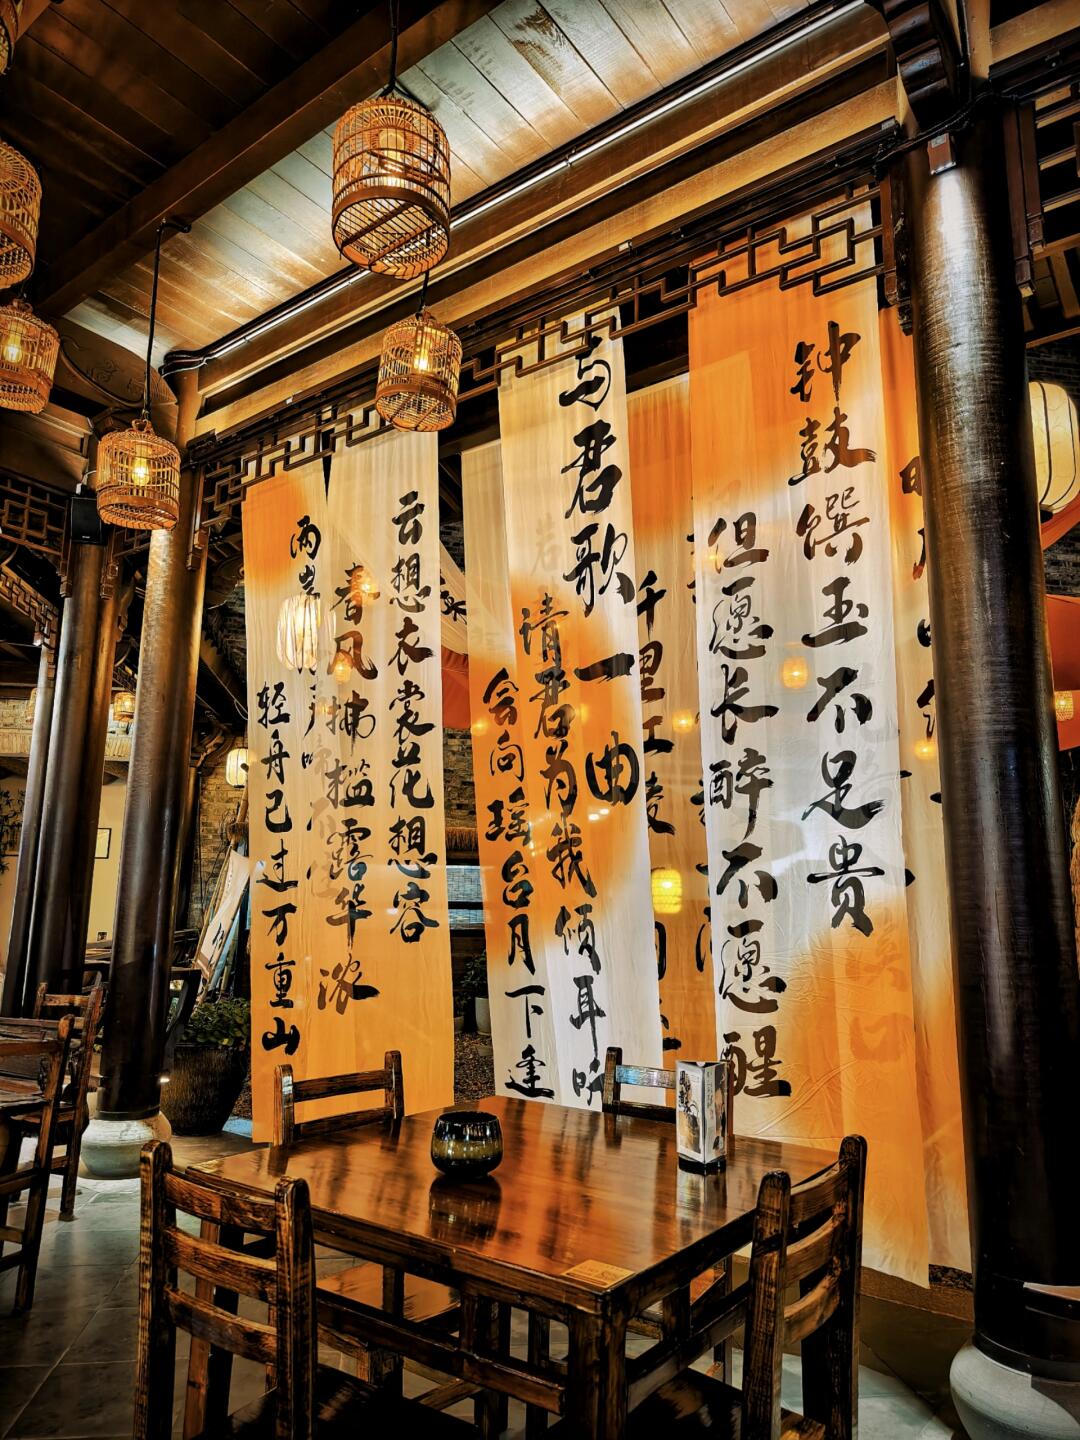 钟鼓馔玉不足贵
但愿长醉不愿醒
与君歌一曲
请君为我倾耳听
会向瑶台月下逢
千里江陵
云想衣裳花想容
春风拂槛露华浓
两岸
轻舟已过万重山